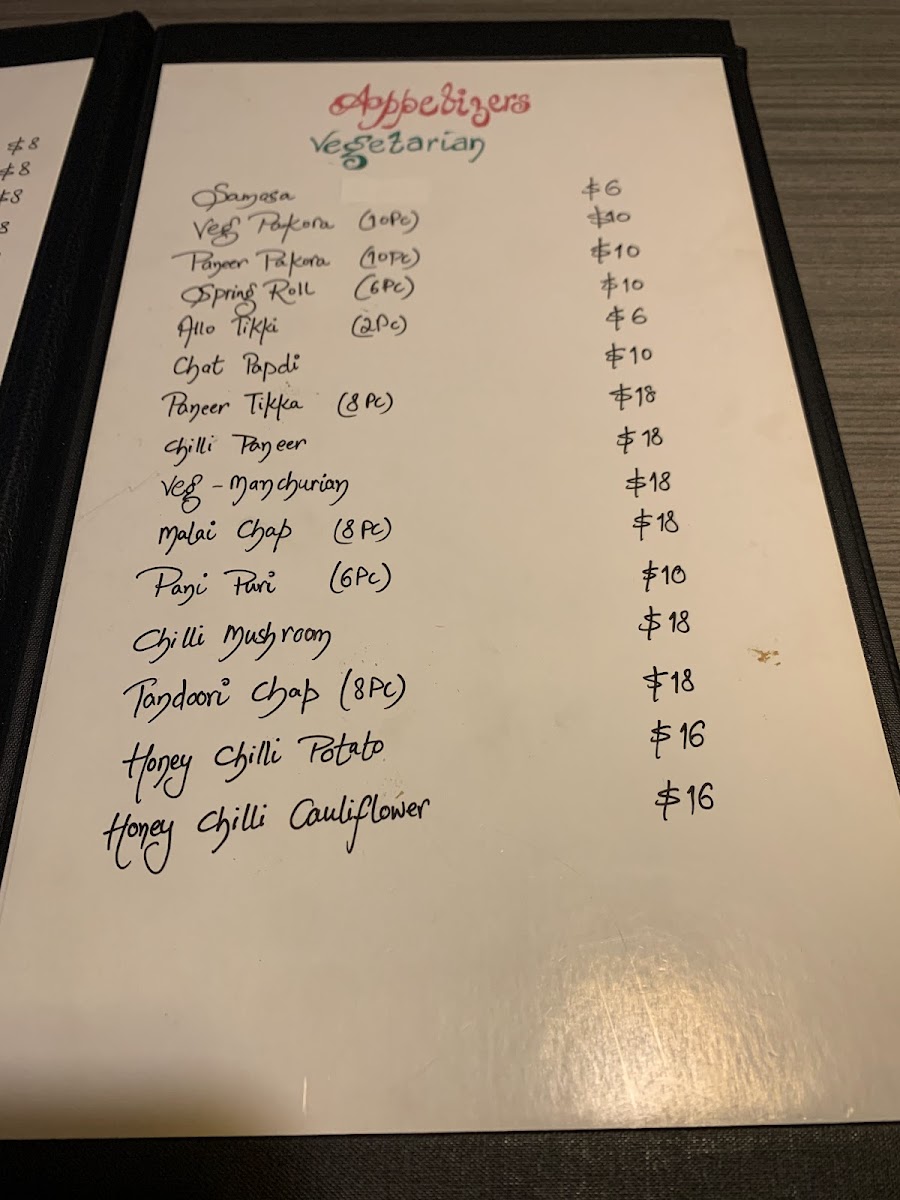 $8
$8
$8
8
Appetizers
Vegetarian
Samosa $6
Veg Pakora (10Pc) $10
Paneer Pakora (10Pc) $10
Spring Roll (6Pc) $10
Allo Tikki (2Pc) $6
Chat Papdi $10
Paneer Tikka (8Pc) $18
Chilli Paneer $18
Veg - Manchurian $18
Malai Chap (8Pc) $18
Pani Puri (6Pc) $10
Chilli Mushroom $18
Tandoori Chap (8Pc) $18
Honey Chilli Potato $16
Honey Chilli Cauliflower $16